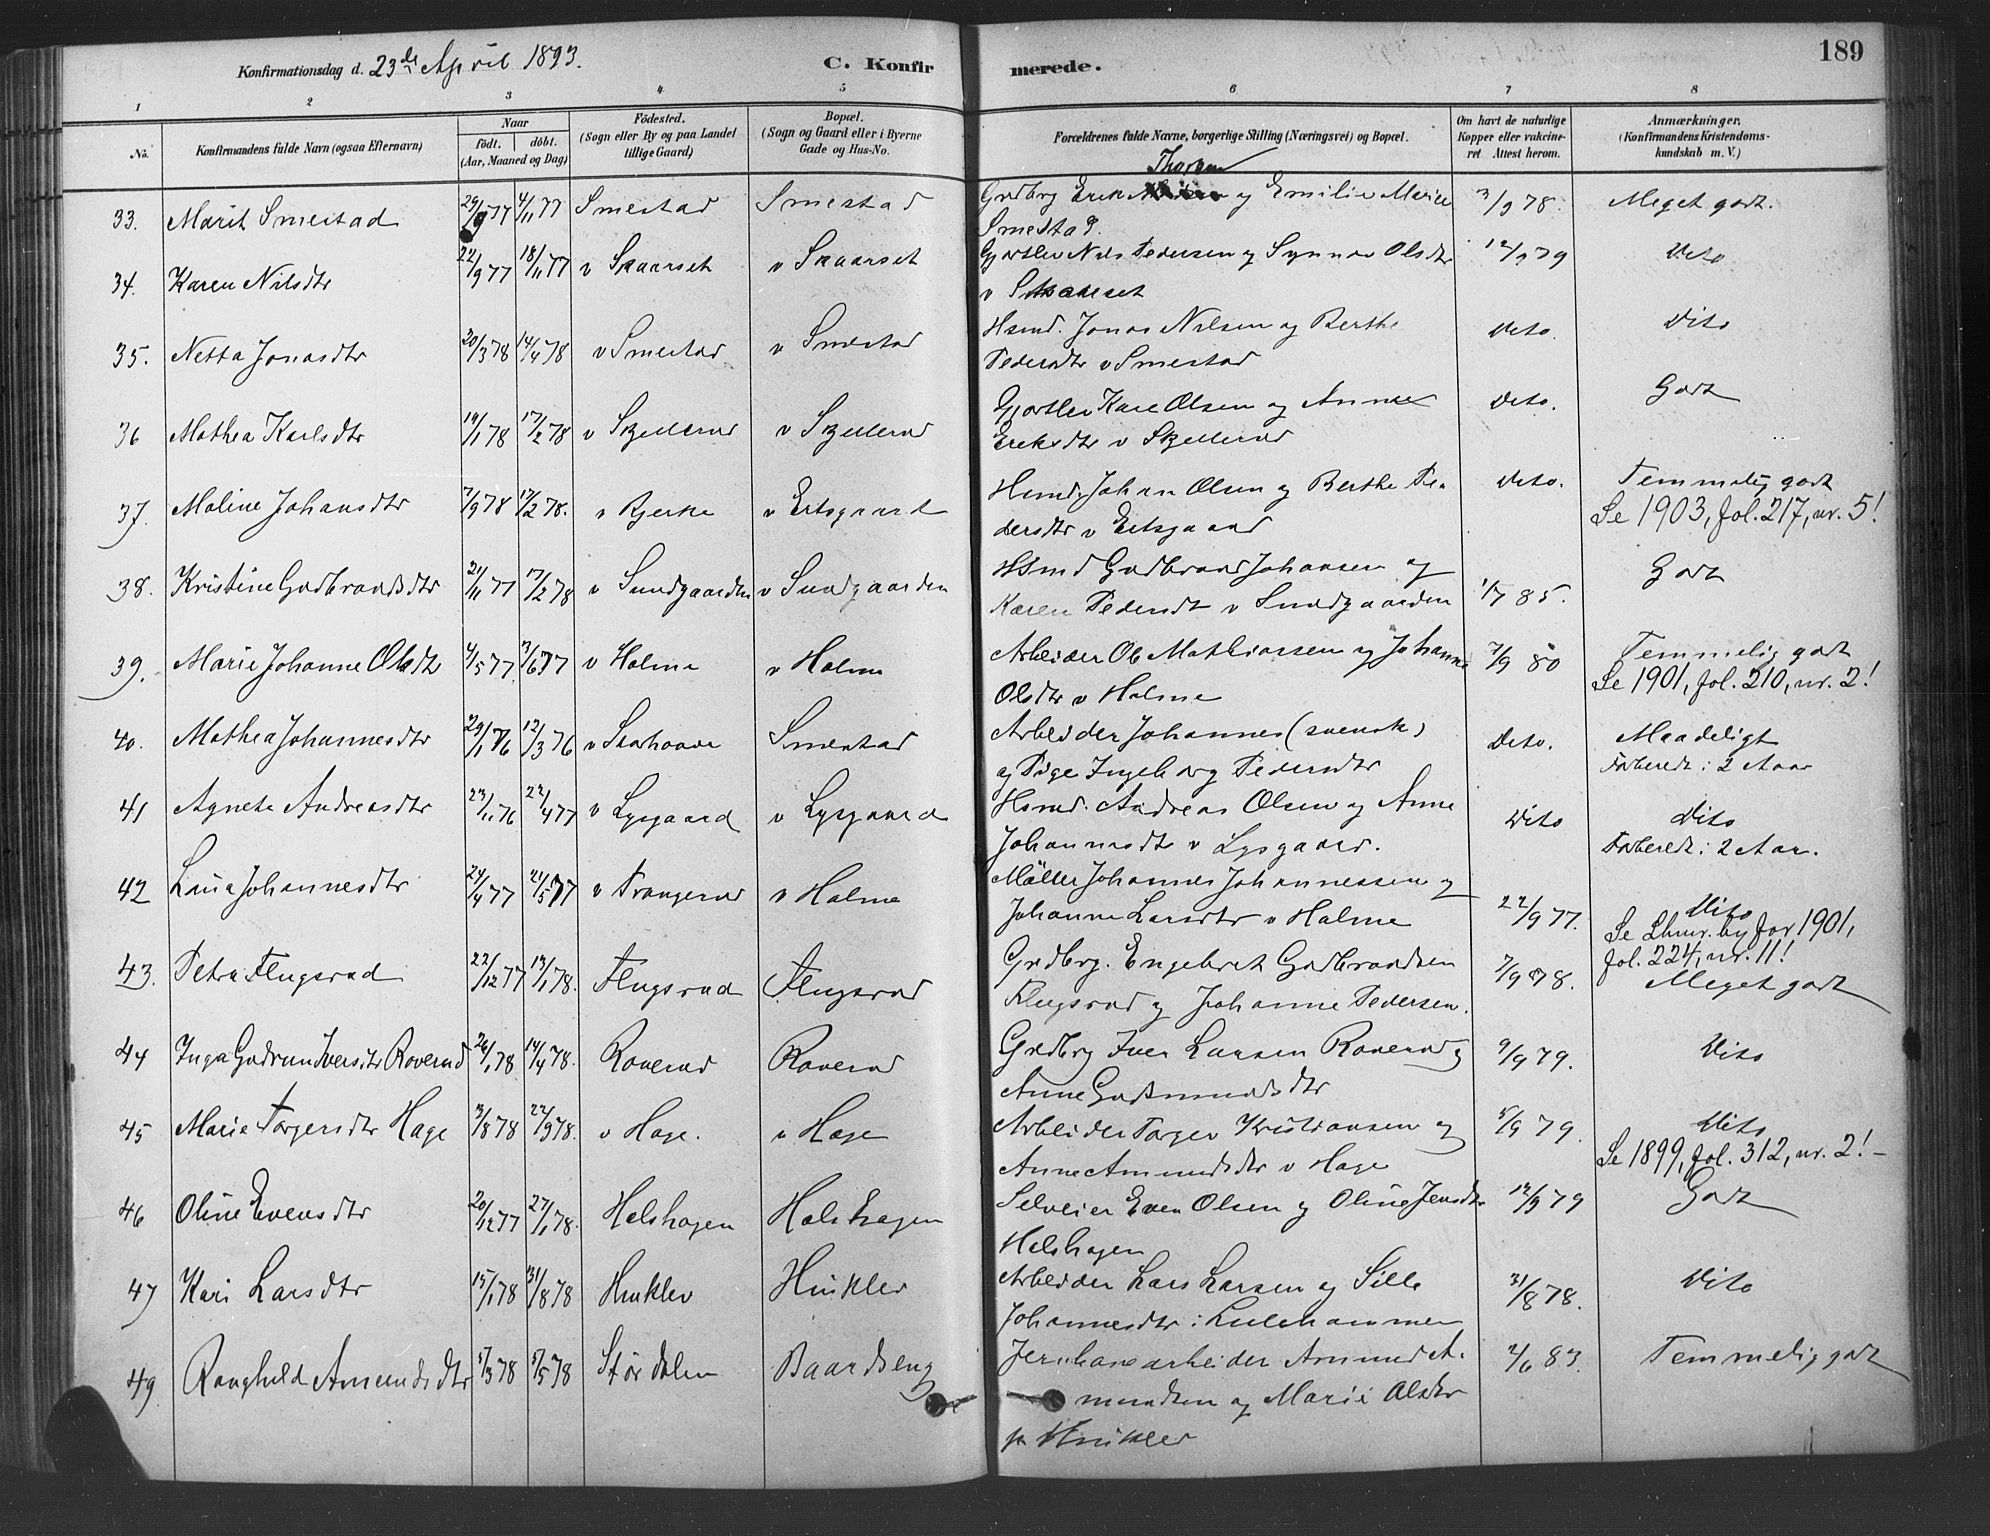 189
Konfirmationsdag d. 23de April 1893. C. Konfirmerede.
1 2 3 4 5 6 7 8
No. Konfirmandens fulde Navn (ogsaa Efternavn) Naar födt. döbt. (Aar, Maaned og Dag) Födested. (Sogn eller By og paa Landet tillige Gaard) Bopæl. (Sogn og Gaard eller i Byerne Gade og Hus-No. Forældrenes fulde Navne, borgerlige Stilling (Næringsvei) og Bopæl. Om havt de naturlige Kopper eller vakcineret. Attest herom. Anmærkninger, (Konfirmandens Kristendomskundskab m. V.)
33. Marit Smestad 29/9 77 4/11 77 Smestad Smestad Grdbrg Erik Thorsen og Emilie Marie 3/9 78. Meget godt.
Smestad.
34. Karen Nilsdtr 22/9 77 18/11 77 v Skaarset v Skaarset Gjortler Nils Pedersen og Synnøv Olsdtr 12/9 79 Dito
v Skaarset
35. Netta Jonasdtr 20/3 78 14/4 78 v Smestad v Smestad Hsmd. Jonas Nilsen og Berthe Dito. Dito
Pedersdtr v Smestad
36 Mathea Karlsdtr 19/1 78 17/2 78 v Skjellerud v Skjellerud Gjortler Kare Olsen og Anne Dito. Godt
Eriksdtr v Skjellerud
37. Maline Johansdtr 7/9 78 17/2 78. v Bjerke v Ertsgaard Hsmd. Johan Olsen og Berthe Pe- Dito. Temmelig godt
dersdtr v Ertsgaard Se 1903, fol. 217, nr. 5!
38. Kristine Gudbrandsdtr 21/11 77 17/2 78 v Sundgaarden v Sundgaarden Hsmd Gudbrand Johansen og Godt
Karen Pedersdt v Sundgaarden 1/7 85.
39. Marie Johanne Olsdtr 4/5 77 3/6 77 v Holme v Holme Arbeider Ole Mathiassen og Johanne 7/9 80 Temmelig godt
Olsdtr v Holme Se 1901, fol. 210, nr. 2!
40. Mathea Johannesdtr 29/1 76 12/3 76 Smestad Arbeider Johannes (svensk) Dito. Maadeligt
og Pige Ingeborg Pedersdtr Forberedt i 2 Aar
41 Agnete Andreasdtr 23/11 76 22/4 77 v Lysgaard v Lysgaard Hsmd. Andreas Olsen og Anne Dito Dito
Johannesdtr v Lysgaard. Forberedt i 2 Aar.
42 Lina Johannesdtr 24/4 77 21/5 77 v Prangerud v Holme Möller Johannes Johannessen og
Johanne Larsdtr v Holme 22/9 77. Dito
Se Lhmr. by for 1901,
fol. 224, nr. 11!
43. Petra Flugsrud 22/12 77 13/1 78. Flugsrud Flugsrud Grdbrg. Engebret Gudbrandsen 7/9 78. Meget godt
Flugsrud og Johanne Pedersen.
44 Inga Gudrun Iversdtr Roverud 26/1 78 14/4 78. Roverud Roverud Grdbrg Iver Larsen Roverud og 9/9 79. Dito
Anne Gudmundsdtr
45 Marie Torgersdtr Hage 3/8 78 22/9 78. v Hage. v Hage Arbeider Torger Kristiansen og 5/9 79. Dito
Anne Amundsdtr v Hage Se 1899, fol. 312, nr. 2! –
46 Oline Evensdtr 20/12 77 27/1 78. Helshagen Helshagen Selveier Even Olsen og Oline Jensdtr 12/9 79 Godt
Helshagen
47 Kari Larsdtr 15/1 78 31/8 78 Hinkler Hinkler Arbeider Lars Larsen og Sille 31/8 78. Dito
Johannesdtr i Lillehammer
49 Ragnhild Amundsdtr 5/3 78 5/5 78 Stördalen Baardseng Jernbanearbeider Amund A- 2/6 83. Temmelig godt
mundsen og Marie Olsdtr
p Hinkler